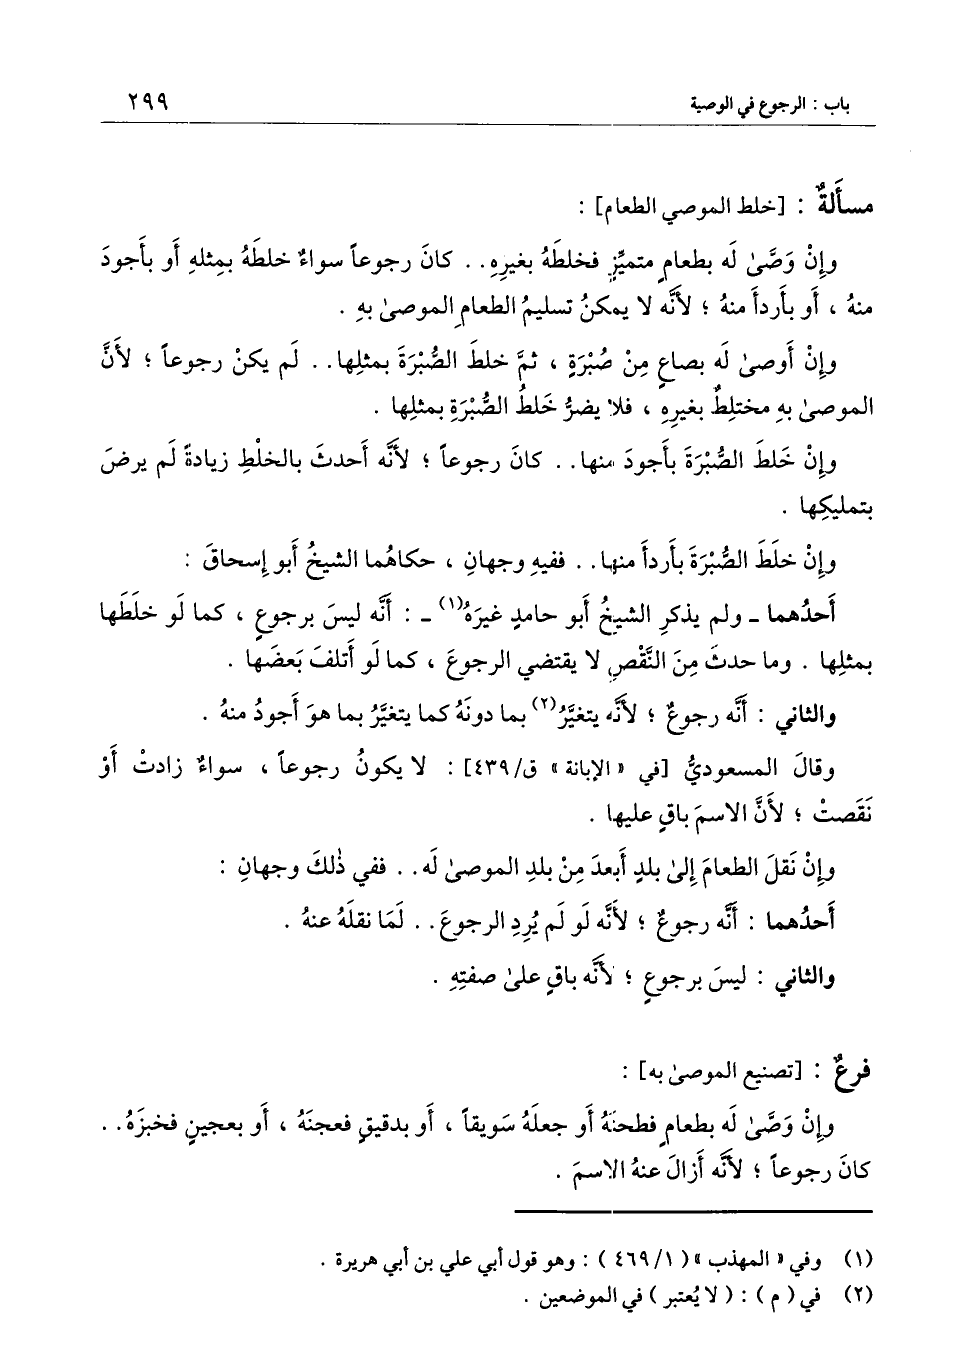 باب : الرجوع في الوصية ٢٩٩
مسألَةٌ : [خلط الموصي الطعام] :
وإِنْ وَصَّىٰ لَه بطعامٍ متميِّزٍ فخلطَهُ بغيرِهِ . . كانَ رجوعاً سواءٌ خلطَهُ بمِثلهِ أَو بأَجودَ
منهُ ، أَو بأَردأَ منهُ ؛ لأَنَّه لا يمكنُ تسليمُ الطعامِ الموصىٰ بهِ .
وإِنْ أَوصىٰ لَه بصاعٍ مِنْ صُبْرَةٍ ، ثمَّ خلطَ الصُّبْرَةَ بمثلِها . . لَم يكنْ رجوعاً ؛ لأَنَّ
الموصىٰ بهِ مختلِطٌ بغيرِهِ ، فلا يضرُّ خَلطُ الصُّبْرَةِ بمثلِها .
وإِنْ خَلطَ الصُّبْرَةَ بأَجودَ منها . . كانَ رجوعاً ؛ لأَنَّه أَحدثَ بالخلْطِ زيادةً لَم يرضَ
بتمليكِها .
وإِنْ خلَطَ الصُّبْرَةَ بأَردأَ منها . . ففيهِ وجهانِ ، حكاهُما الشيخُ أَبو إِسحاقَ :
أَحدُهما ـ ولم يذكرِ الشيخُ أَبو حامدٍ غيرَهُ(١) ـ : أَنَّه ليسَ برجوعٍ ، كما لَو خلَطَها
بمثلِها . وما حدثَ مِنَ النَّقْصِ لا يقتضي الرجوعَ ، كما لَو أَتلفَ بَعضَها .
والثاني : أَنَّه رجوعٌ ؛ لأَنَّه يتغيَّرُ(٢) بما دونَهُ كما يتغيَّرُ بما هوَ أَجودُ منهُ .
وقالَ المسعوديُّ [في « الإبانة » ق/٤٣٩] : لا يكونُ رجوعاً ، سواءٌ زادتْ أَوْ
نَقَصتْ ؛ لأَنَّ الاسمَ باقٍ عليها .
وإِنْ نَقلَ الطعامَ إِلىٰ بلدٍ أَبعدَ مِنْ بلدِ الموصىٰ لَه . . ففي ذٰلكَ وجهانِ :
أَحدُهما : أَنَّه رجوعٌ ؛ لأَنَّه لَو لَم يُرِدِ الرجوعَ . . لَمَا نقلَهُ عنهُ .
والثاني : ليسَ برجوعٍ ؛ لأَنَّه باقٍ علىٰ صفتِهِ .
فرعٌ : [تصنيع الموصىٰ به] :
وإِنْ وَصَّىٰ لَه بطعامٍ فطحنَهُ أَو جعلَهُ سَويقاً ، أَو بدقيقٍ فعجنَهُ ، أَو بعجينٍ فخبزَهُ . .
كانَ رجوعاً ؛ لأَنَّه أَزالَ عنهُ الاسمَ .
(١) وفي « المهذب » ( ١/ ٤٦٩ ) : وهو قول أبي علي بن أبي هريرة .
(٢) في ( م ) : ( لا يُعتبر ) في الموضعين .